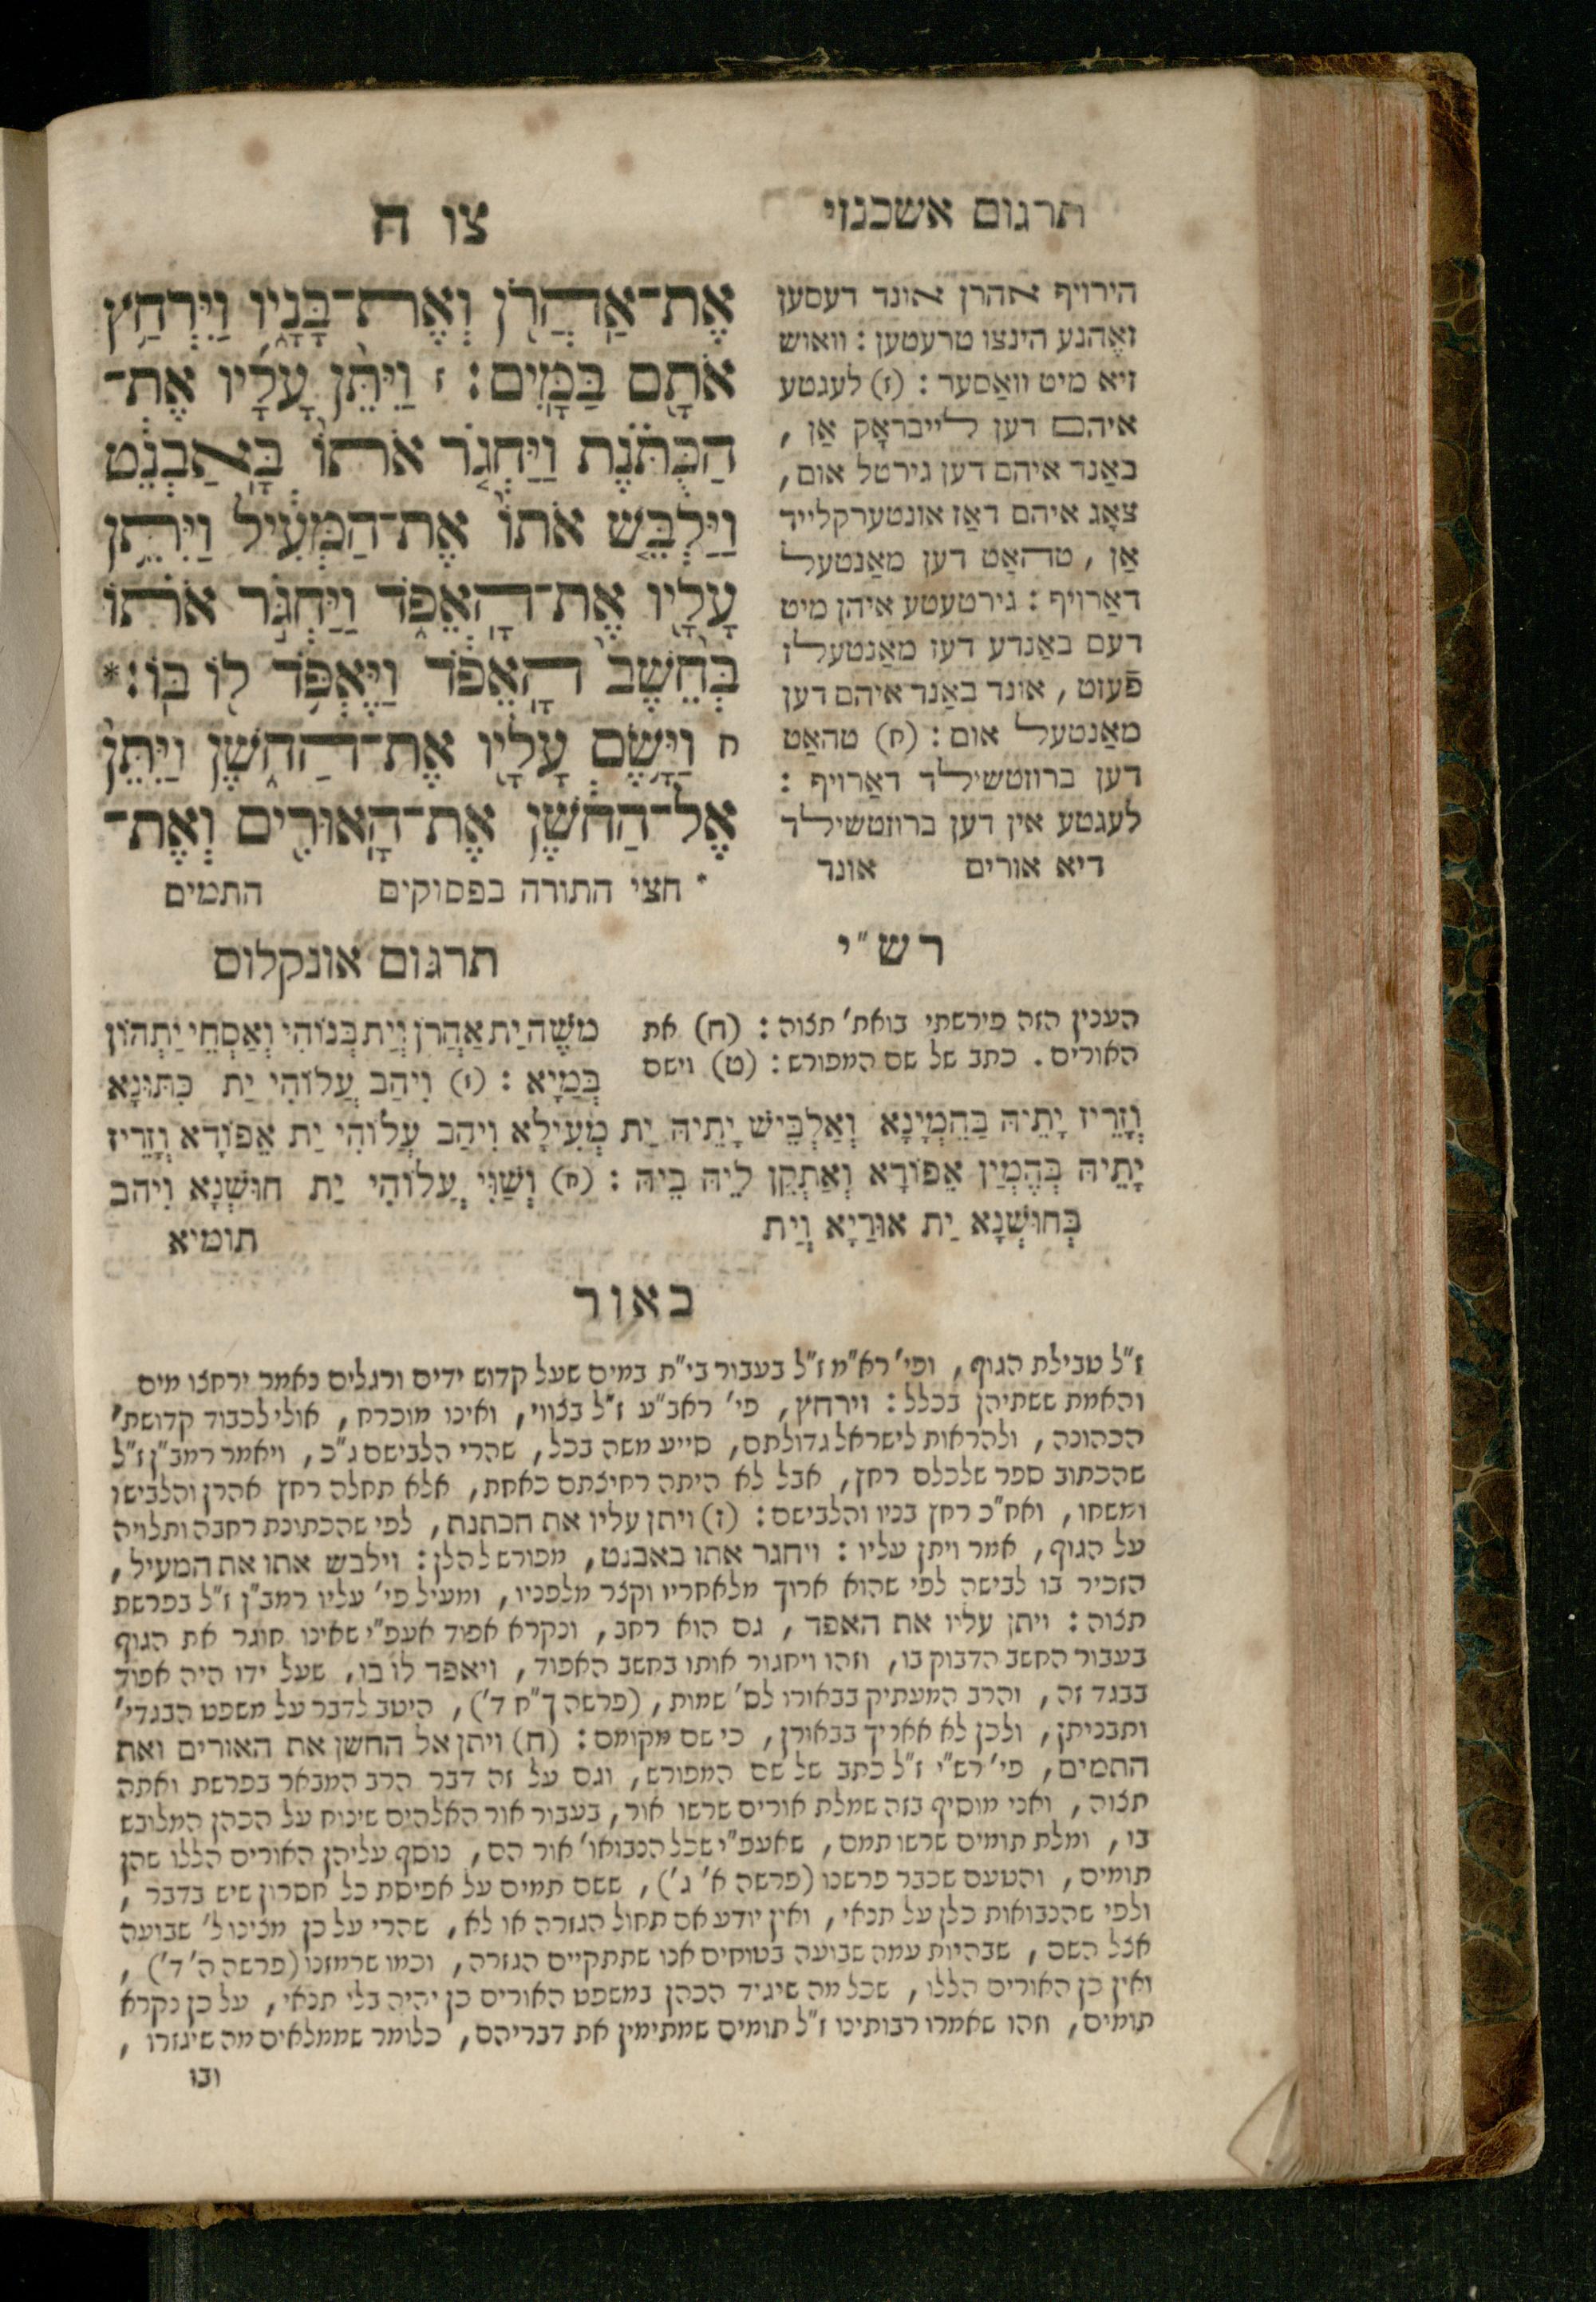 תרגום אשכנזי
הירויף אהרן אונד דעסען
זאֶהנע הינצו טרעטען : וואוש
זיא מיט וואַסער : (ז) לעגטע
איהם דען לייבראָק אַן ,
באַנד איהם דען גירטל אום ,
צאָג איהם דאַז אונטערקלייד
אַן , טהאַט דען מאַנטעל
דאַרויף : גירטעטע איהן מיט
דעם באַנדע דעז מאַנטעלז
פֿעזט , אונד באַנד איהם דען
מאַנטעל אום : (ח) טהאַט
דען ברוזטשילד דאַרויף :
לעגטע אין דען ברוזטשילד
דיא אורים אונד
צו ח
אֶת־אַהֲרֹ֖ן וְאֶת־בָּנָ֑יו וַיִּרְחַ֥ץ
אֹתָ֖ם בַּמָּֽיִם׃ ז וַיִּתֵּ֨ן עָלָ֜יו אֶת־
הַכֻּתֹּ֗נֶת וַיַּחְגֹּ֤ר אֹתוֹ֙ בָּֽאַבְנֵ֔ט
וַיַּלְבֵּ֤שׁ אֹתוֹ֙ אֶת־הַמְּעִ֔יל וַיִּתֵּ֥ן
עָלָ֖יו אֶת־הָֽאֵפֹ֑ד וַיַּחְגֹּ֣ר אֹת֗וֹ
בְּחֵ֨שֶׁב֙ הָֽאֵפֹ֔ד וַיֶּאְפֹּ֥ד ל֖וֹ בּֽוֹ׃*
ח וַיָּ֥שֶׂם עָלָ֖יו אֶת־הַחֹ֑שֶׁן וַיִּתֵּן֙
אֶל־הַחֹ֔שֶׁן אֶת־הָֽאוּרִ֖ים וְאֶת־
* חצי התורה בפסוקים התמים
רש״י
הענין הזה פירשתי בואת׳ תצוה : (ח) את
האורים . כתב של שם המפורש : (ט) וישם
תרגום אונקלוס
משֶׁה יַת אַהֲרֹן וְיַת בְּנוֹהִי וְאַסְחֵי יַתְהוֹן
בְּמַיָא : (ז) וִיהַב עֲלוֹהִי יַת כִּתּוּנָא
וְזָרֵיז יָתֵיהּ בְּהֶמְיָנָא וְאַלְבֵּישׁ יָתֵיהּ יַת מְעִילָא וִיהַב עֲלוֹהִי יַת אֵפוֹדָא וְזָרֵיז
יָתֵיהּ בְּהֶמְיַן אֵפוֹדָא וְאַתְקֵן לֵיהּ בֵּיהּ : (ח) וְשַׁוִּי עֲלוֹהִי יַת חוּשְׁנָא וִיהב
בְּחוּשְׁנָא יַת אוּרַיָא וְיַת תומיא
באור
ז״ל טבילת הגוף , ופי׳ רא״מ ז״ל בעבור בי״ת במים שעל קדוש ידים ורגלים נאמר ירחצו מים
והאמת ששתיהן בכלל : וירחץ , פי׳ ראב״ע ז״ל בצווי , ואינו מוכרח , אולי לכבוד קדושת׳
הכהונה , ולהראות לישראל גדולתם , סייע משה בכל , שהרי הלבישם ג״כ , ויאמר רמב״ן ז״ל
שהכתוב ספר שלכלם רחץ , אבל לא היתה רחיצתם כאחת , אלא תחלה רחץ אהרן והלבישו
ומשחו , ואח״כ רחץ בניו והלבישם : (ז) ויתן עליו את הכתנת , לפי שהכתונת רחבה ותלויה
על הגוף , אמר ויתן עליו : ויחגר אתו באבנט , מפורש להלן : וילבש אתו את המעיל ,
הזכיר בו לבישה לפי שהוא ארוך מלאחריו וקצר מלפניו , ומעיל פי׳ עליו רמב״ן ז״ל בפרשת
תצוה : ויתן עליו את האפד , גם הוא רחב , ונקרא אפוד אעפ״י שאינו חוגר את הגוף
בעבור החשב הדבוק בו , וזהו ויחגור אותו בחשב האפוד , ויאפד לו בו , שעל ידו היה אפוד
בבגד זה , והרב המעתיק בבאורו לס׳ שמות , (פרשה ך״ח ד׳) , היטב לדבר על משפט הבגדי׳
ותבניתן , ולכן לא אאריך בבאורן , כי שם מקומם : (ח) ויתן אל החשן את האורים ואת
התמים , פי׳ רש״י ז״ל כתב של שם המפורש , וגם על זה דבר הרב המבאר בפרשת ואתה
תצוה , ואני מוסיף בזה שמלת אורים שרשו אור , בעבור אור האלהים שינוח על הכהן המלובש
בו , ומלת תומים שרשו תמם , שאעפ״י שכל הנבואו׳ אור הם , נוסף עליהן האורים הללו שהן
תומים , והטעם שכבר פרשנו (פרשה א׳ ג׳) , ששם תמים על אפיסת כל חסרון שיש בדבר ,
ולפי שהנבואות כלן על תנאי , ואין יודע אם תחול הגזרה או לא , שהרי על כן מצינו ל׳ שבועה
אצל השם , שבהיות עמה שבועה בטוחים אנו שתתקיים הגזרה , וכמו שרמזנו (פרשה ה׳ ד׳) ,
ואין כן האורים הללו , שכל מה שיגיד הכהן במשפט האורים כן יהיה בלי תנאי , על כן נקרא
תומים , וזהו שאמרו רבותינו ז״ל תומים שמתימין את דבריהם , כלומר שממלאים מה שיגזרו ,
ובו